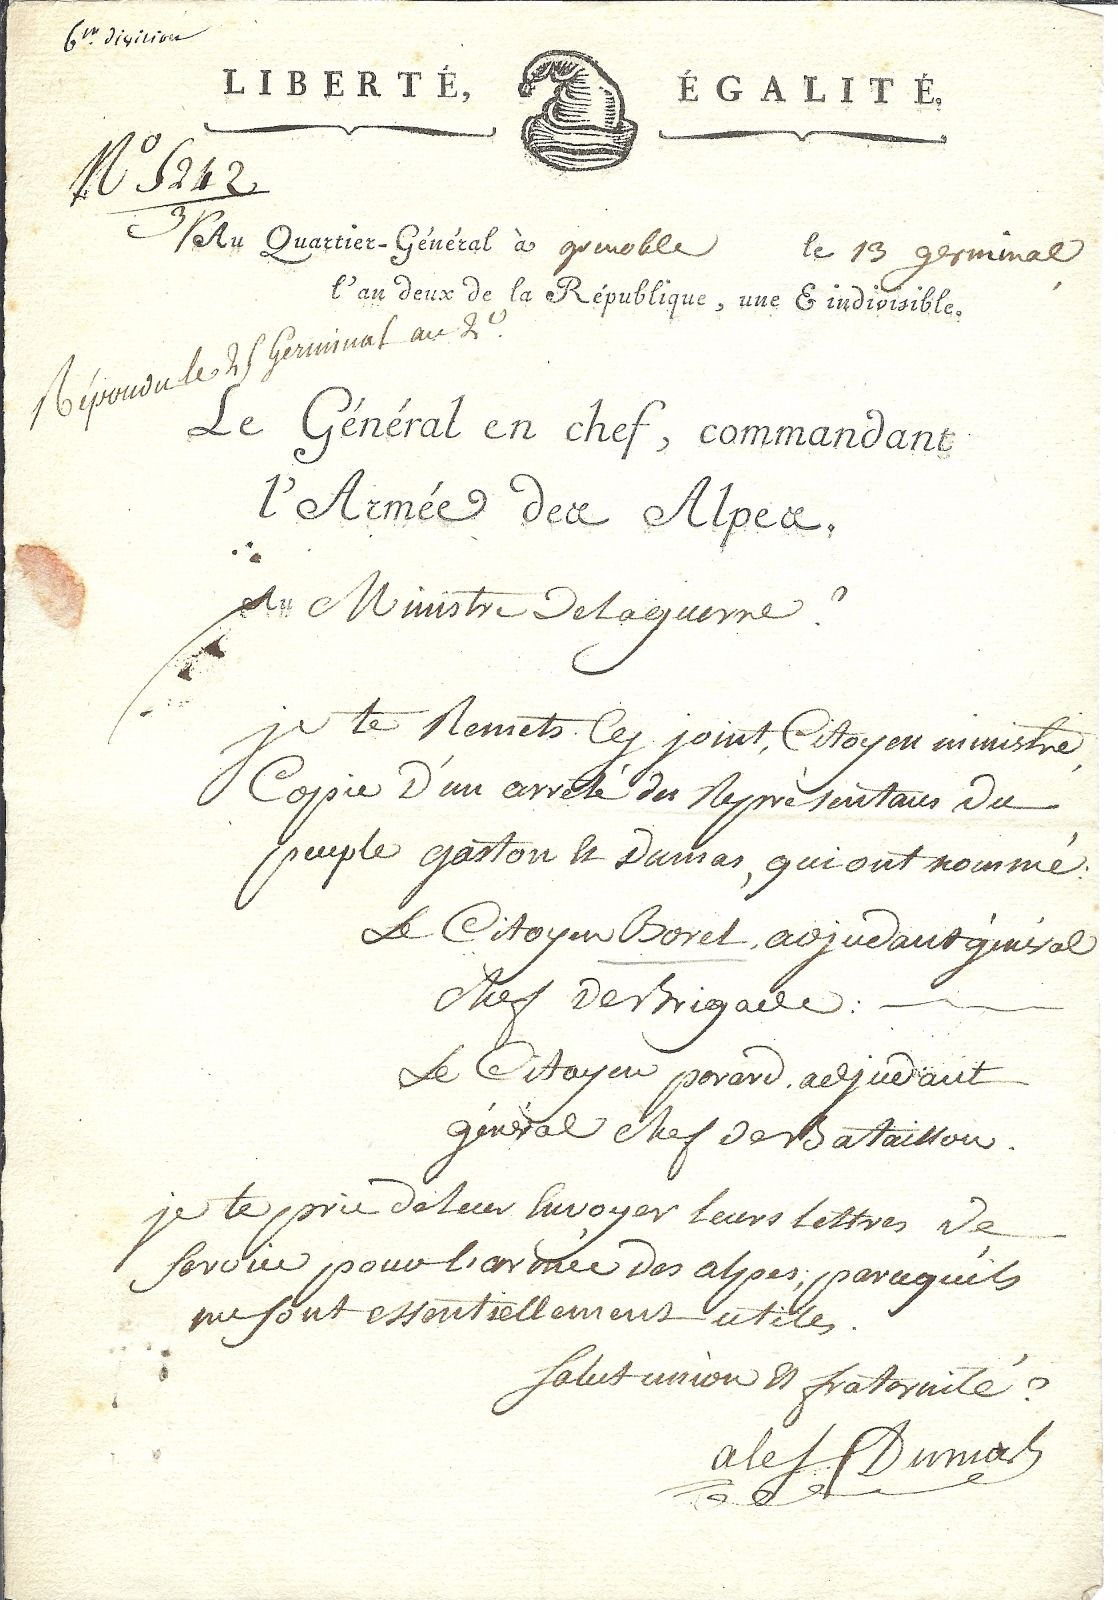 6me division
LIBERTÉ, ÉGALITÉ,
No 5242
3
Au Quartier-Général à grenoble le 13 germinal
l'an deux de la République, une & indivisible.
Répondu le 25 Germinal an 2e.
Le Général en chef, commandant
l'Armée des Alpes.
Au Ministre delaguerre
je te Remets Cy joint, Citoyen ministre,
Copie D'un arreté des Représentans du
peuple gaston & Dumas, qui ont nommé:
Le Citoyen Borel, adjudant général
Chef de Brigade:
Le Citoyen porard, adjudant
général chef de Bataillon.
je te prie deleur Envoyer leurs lettres de
Service pour l'armée des alpes, parcequ'ils
me sont essentiellement utiles.
Salut union & fraternité
alex Dumas